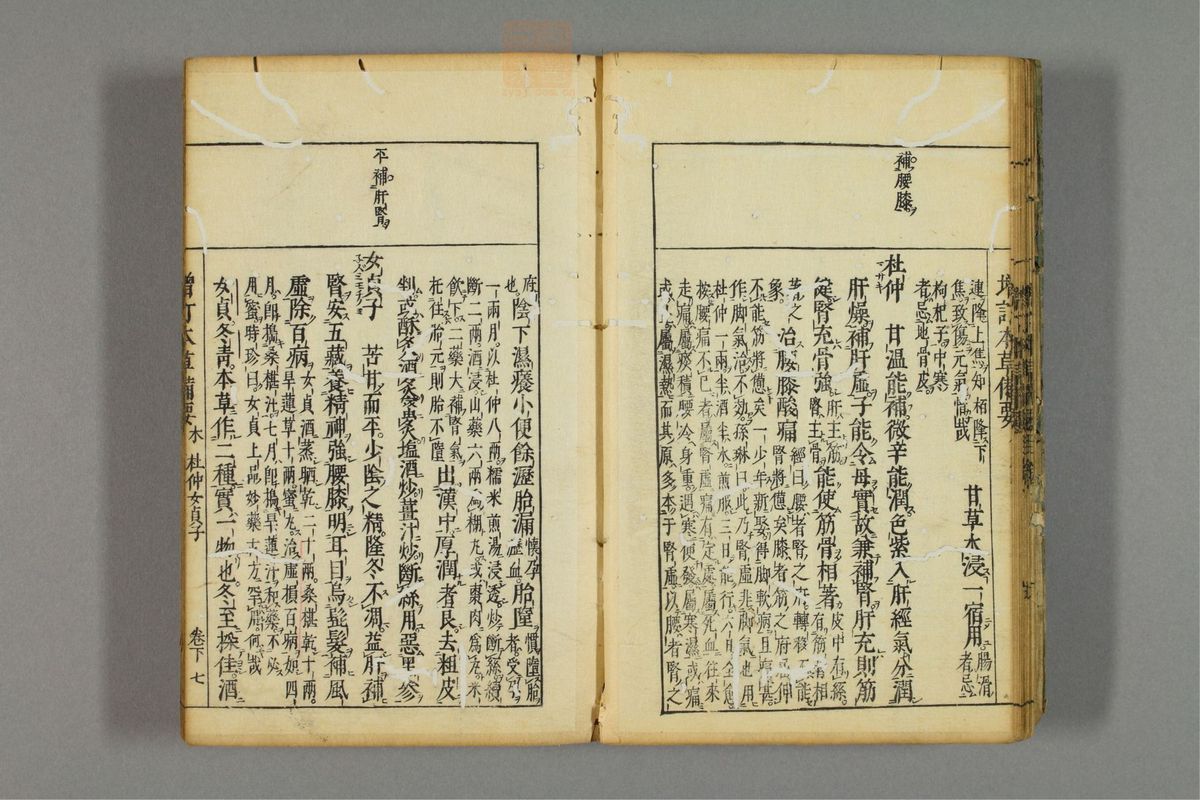 補腰膝
連降上焦知栢降下
焦致傷元氣惜哉 甘草水浸一宿用腸滑
枸杞子中寒者忌
者忌地骨皮
杜仲 甘温能補微辛能潤色紫入肝經氣分潤
肝燥補肝虛子能令母實故兼補腎肝充則筋
健腎充骨強肝主筋腎主骨能使筋骨相著皮中有絲有筋骨相
著之象治腰膝酸痛經曰腰者腎之府轉移不能
腎將憊矣膝者筋之府屈伸
不能筋將憊矣一少年新娶得脚軟病且疼甚
作脚氣治不効孫琳曰此乃腎虛非脚氣也用
杜仲一兩半酒半水煎服三日能行六日全愈
按腰痛不已者屬腎虛痛有定處屬死血往來
走痛屬痰積腰冷身重遇寒便發屬寒濕或痛
或止屬濕熱而其原多本于腎虛以腰者腎之
增訂本草備要
平補肝腎
府也陰下濕癢小便餘瀝胎漏懷孕瀝血胎墮慣墮胎者受孕
一兩月以杜仲八兩糯米煎湯浸透炒斷絲續
斷二兩酒浸山藥六兩為糊丸或棗肉為丸米
飲下二藥大補腎氣托住胎元則胎不墮出漢中厚潤者良去粗皮
剉或酥炙酒炙蜜炙塩酒炒薑汁炒斷絲用惡黑參
女貞子 苦甘而平少陰之精隆冬不凋益肝補
腎安五藏養精神強腰膝明耳目烏髭髮補風
虛除百病女貞酒蒸晒乾二十兩桑椹乾十兩
旱蓮草十兩蜜丸治虛損百病如四
月即搗桑椹汁七月即搗旱蓮汁和藥不必
用蜜時珍曰女貞上品妙藥古方罕用何哉
女貞冬青本草作二種實一物也冬至採佳酒
增訂本草備要 木 杜仲女貞子 卷下 七